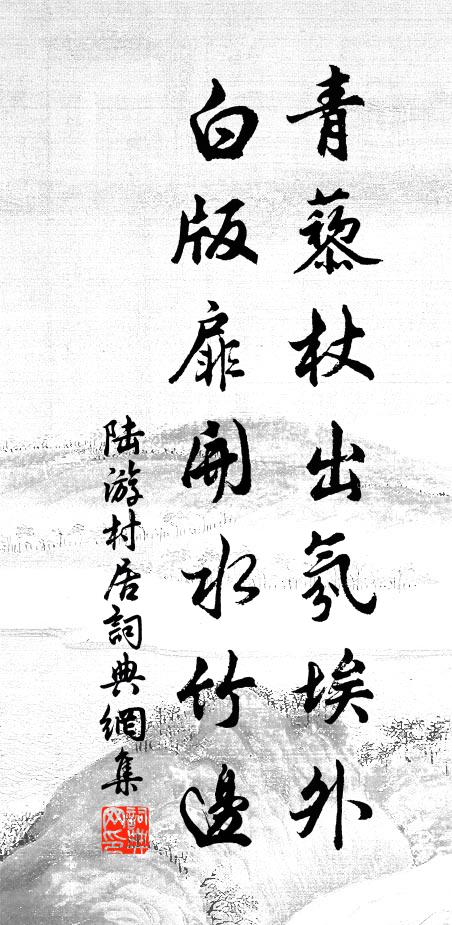 青藜杖出氛埃外
白版扉開水竹邊
陆游村居詞典網集